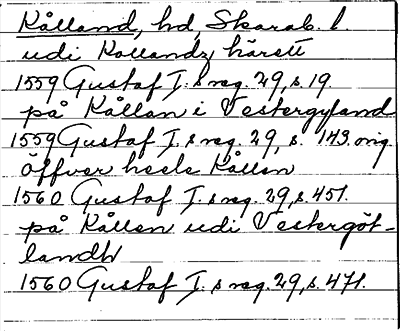 Kålland, hd, Skarab. l.
udi Kollandz härett
1559 Gustaf I.s reg. 29, s. 19.
på Kållan i Vestergylland
1559 Gustaf I.s reg. 29, s. 143. orig.
öffver heele Kållen
1560 Gustaf I.s reg. 29, s. 451.
på Kållen udi Vestergöt-
landh
1560 Gustaf I.s reg. 29, s. 471.